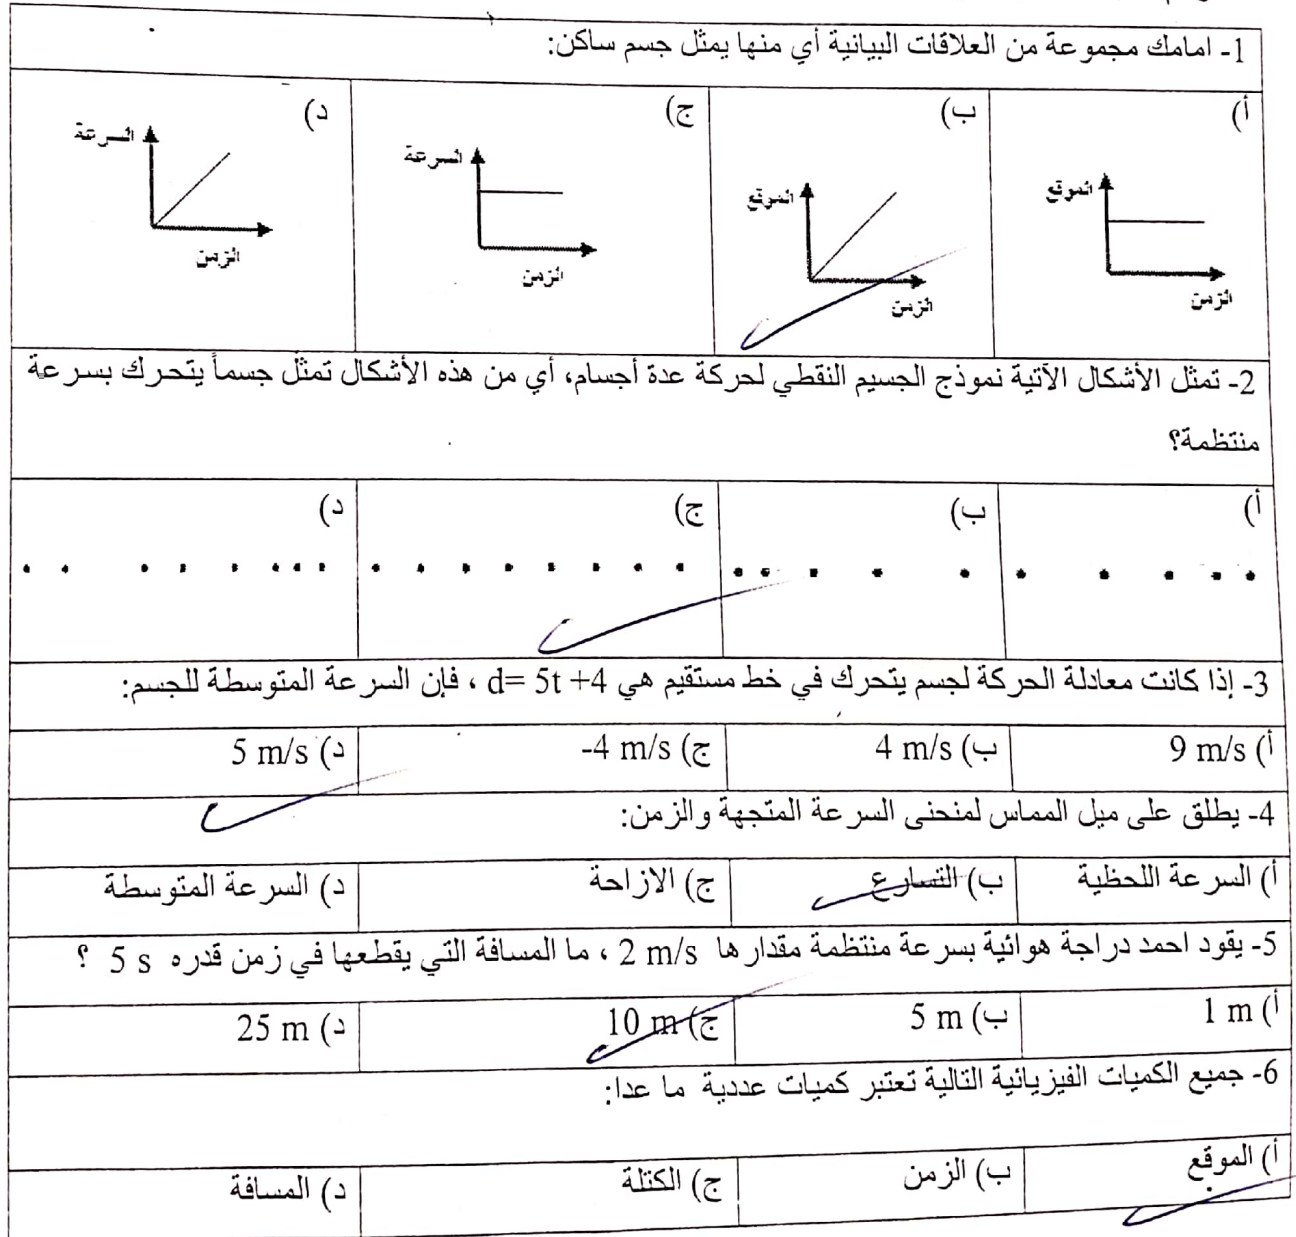 1- امامك مجموعة من العلاقات البيانية أي منها يمثل جسم ساكن:
أ)
ب)
ج)
د)
الموقع
الزمن
الموقع
الزمن
السرعة
الزمن
السرعة
الزمن
2- تمثل الأشكال الآتية نموذج الجسيم النقطي لحركة عدة أجسام، أي من هذه الأشكال تمثل جسماً يتحرك بسرعة
منتظمة؟
أ)
ب)
ج)
د)
3- إذا كانت معادلة الحركة لجسم يتحرك في خط مستقيم هي d= 5t +4 ، فإن السرعة المتوسطة للجسم:
أ) 9 m/s
ب) 4 m/s
ج) -4 m/s
د) 5 m/s
4- يطلق على ميل المماس لمنحنى السرعة المتجهة والزمن:
أ) السرعة اللحظية
ب) التسارع
ج) الازاحة
د) السرعة المتوسطة
5- يقود احمد دراجة هوائية بسرعة منتظمة مقدارها 2 m/s ، ما المسافة التي يقطعها في زمن قدره 5 s ؟
أ) 1 m
ب) 5 m
ج) 10 m
د) 25 m
6- جميع الكميات الفيزيائية التالية تعتبر كميات عددية ما عدا:
أ) الموقع
ب) الزمن
ج) الكتلة
د) المسافة